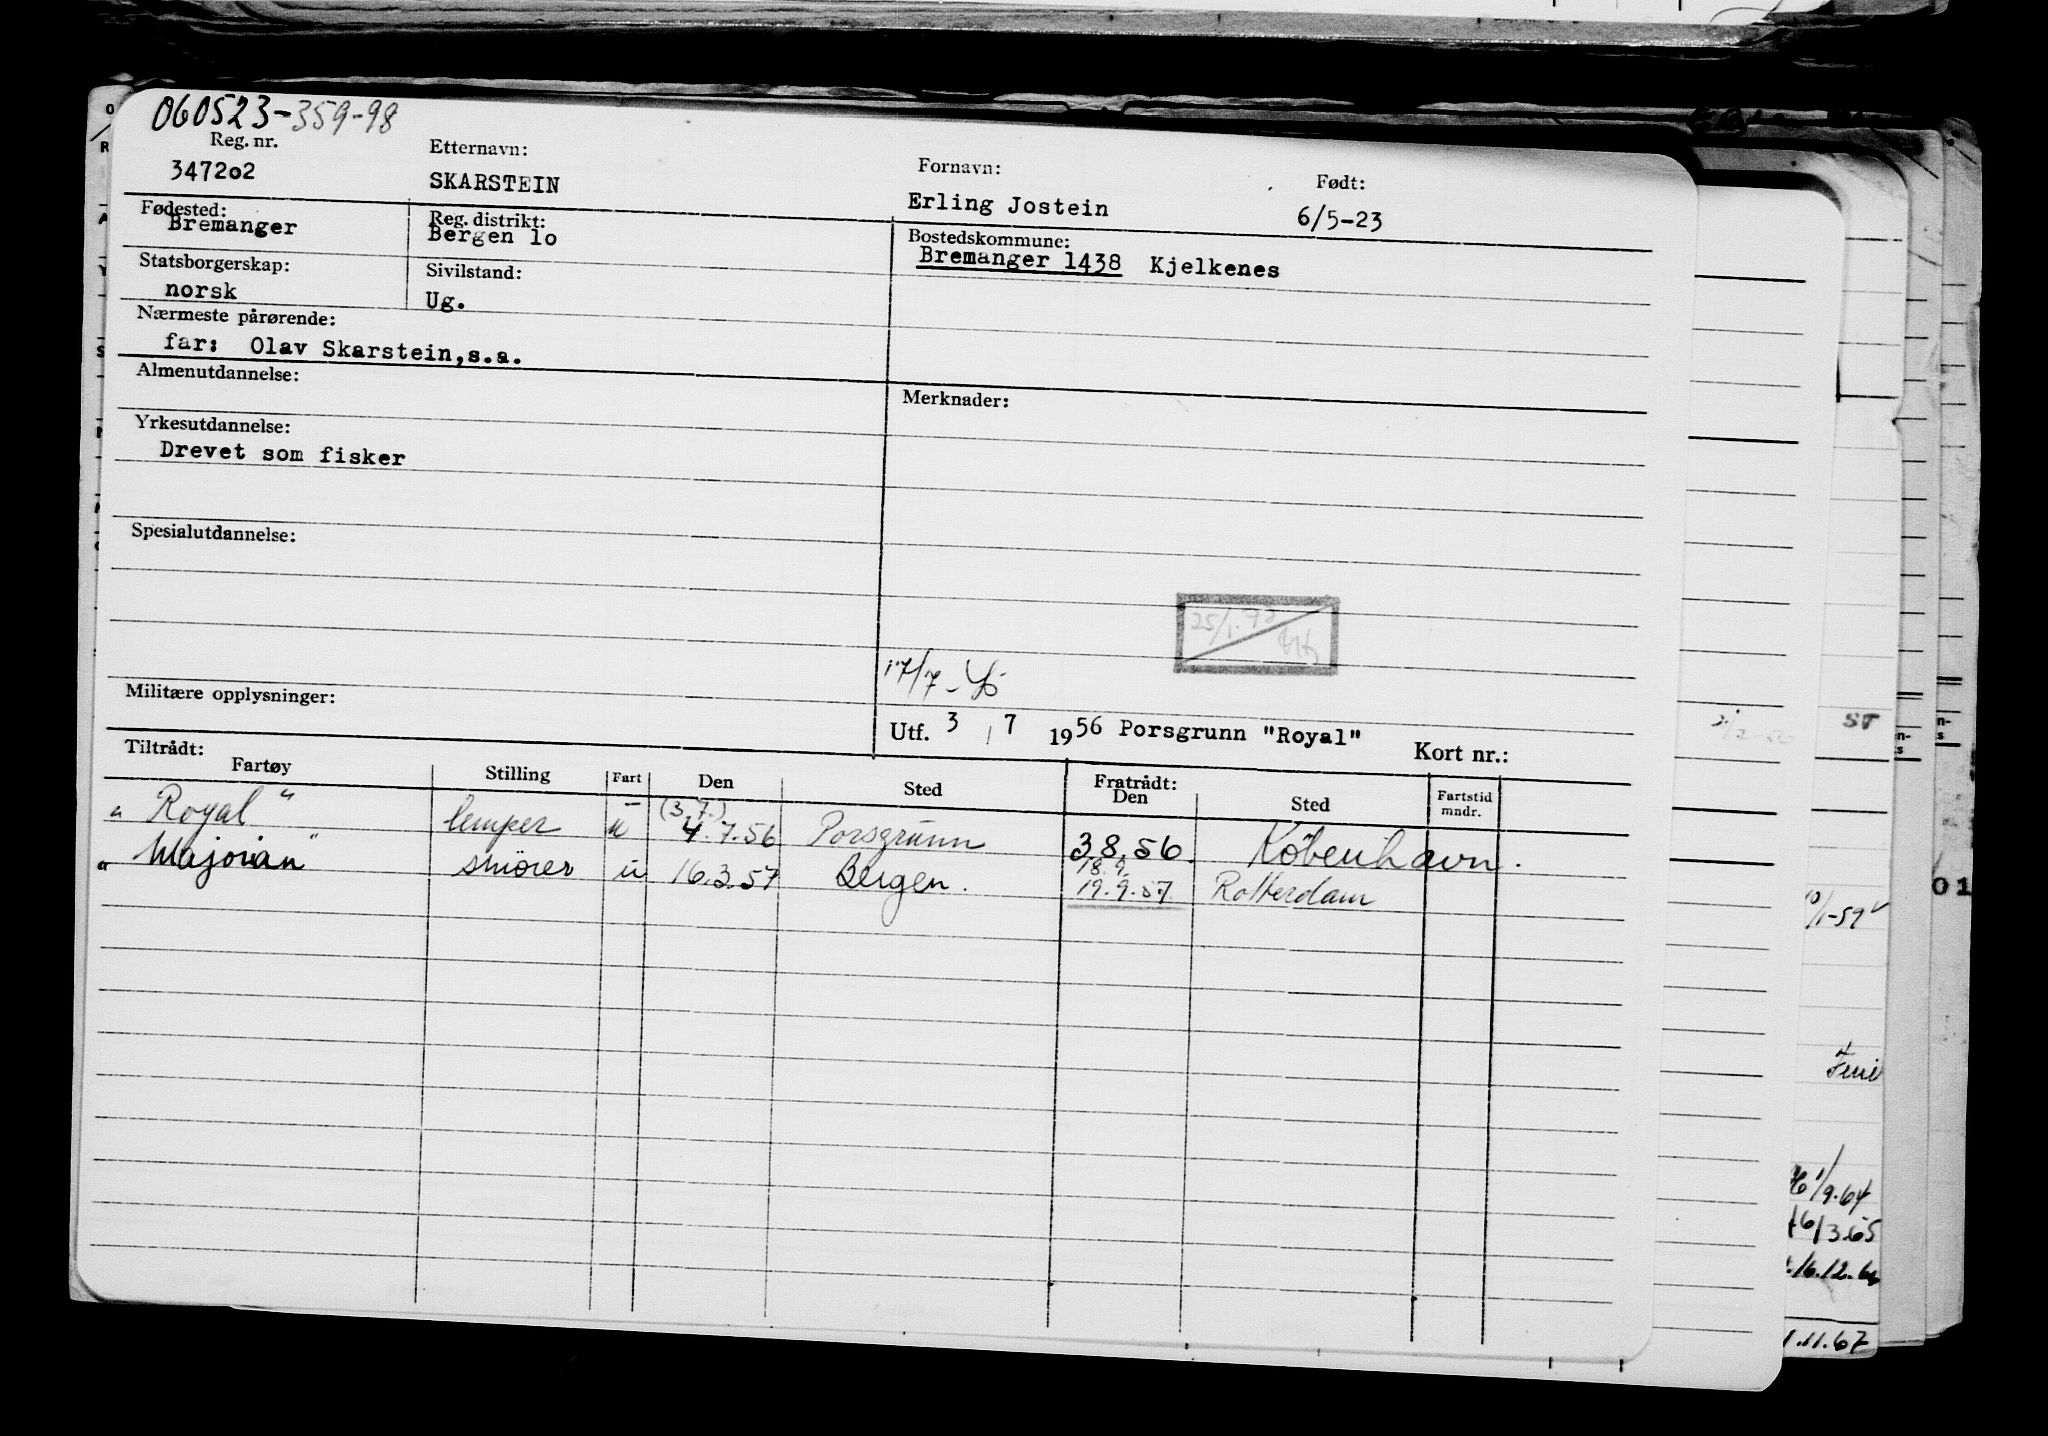 060523-359-98
Reg. nr. Etternavn: Fornavn: Født:
347202 SKARSTEIN Erling Jostein 6/5-23
Fødested: Reg. distrikt: Bostedskommune:
Bremanger Bergen lo Bremanger 1438 Kjelkenes
Statsborgerskap: Sivilstand:
norsk Ug.
Nærmeste pårørende:
far: Olav Skarstein,s.a.
Almenutdannelse: Merknader:
Yrkesutdannelse:
Drevet som fisker
Spesialutdannelse:
25/1.73
17/7-
Militære opplysninger:
Utf. 3 / 7 1956 Porsgrunn "Royal" Kort nr.:
Tiltrådt: Fratrådt:
Fartøy Stilling Fart Den Sted Den Sted Fartstid mndr.
(3.7.)
"Royal" lemper u 4.7.56 Porsgrunn 3.8.56. København.
18.9.
"Majorian" smører u 16.3.57 Bergen. 19.9.57. Rotterdam
2/2-56
57
10/1-59
01
Ferie
1/9.64
16/3.65
16.12.66
1.11.67